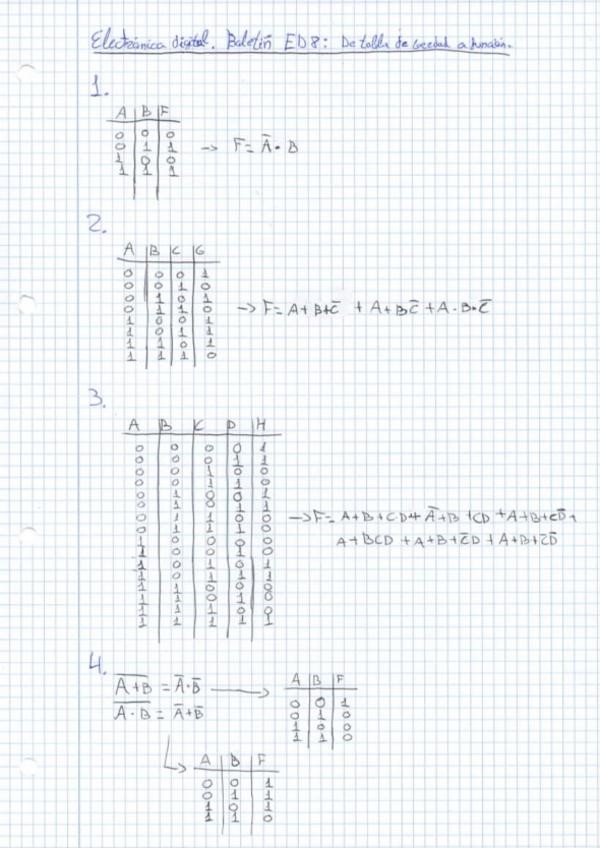 Electrónica digital. Boletín ED8: De tabla de verdad a función.
1.
A B F
0 0 0
0 1 1
1 0 0
1 1 1
→ F = A̅ · B
2.
A B C G
0 0 0 1
0 0 1 0
0 1 0 1
0 1 1 0
1 0 0 1
1 0 1 1
1 1 0 1
1 1 1 0
→ F = A + B + C̅ + A + B C̅ + A · B · C̅
3.
A B C D H
0 0 0 0 1
0 0 0 1 1
0 0 1 0 0
0 0 1 1 0
0 1 0 0 1
0 1 0 1
0 1 1 0 0
0 1 1 1 0
1 0 0 0 0
1 0 0 1 0
1 0 1 0 1
1 0 1 1 1
1 1 0 0 0
1 1 0 1 0
1 1 1 0 0
1 1 1 1 1
→ F = A + B + CD + A̅ + B + CD + A + B + C D̅ +
A + BCD + A + B + C̅D + A + B + C̅D̅
4.
A̅+̅B̅ = A̅ · B̅ →
A̅·̅B̅ = A̅ + B̅
A B F
0 0 1
0 1 0
1 0 0
1 1 0
A B F
0 0 1
0 1 1
1 0 1
1 1 0